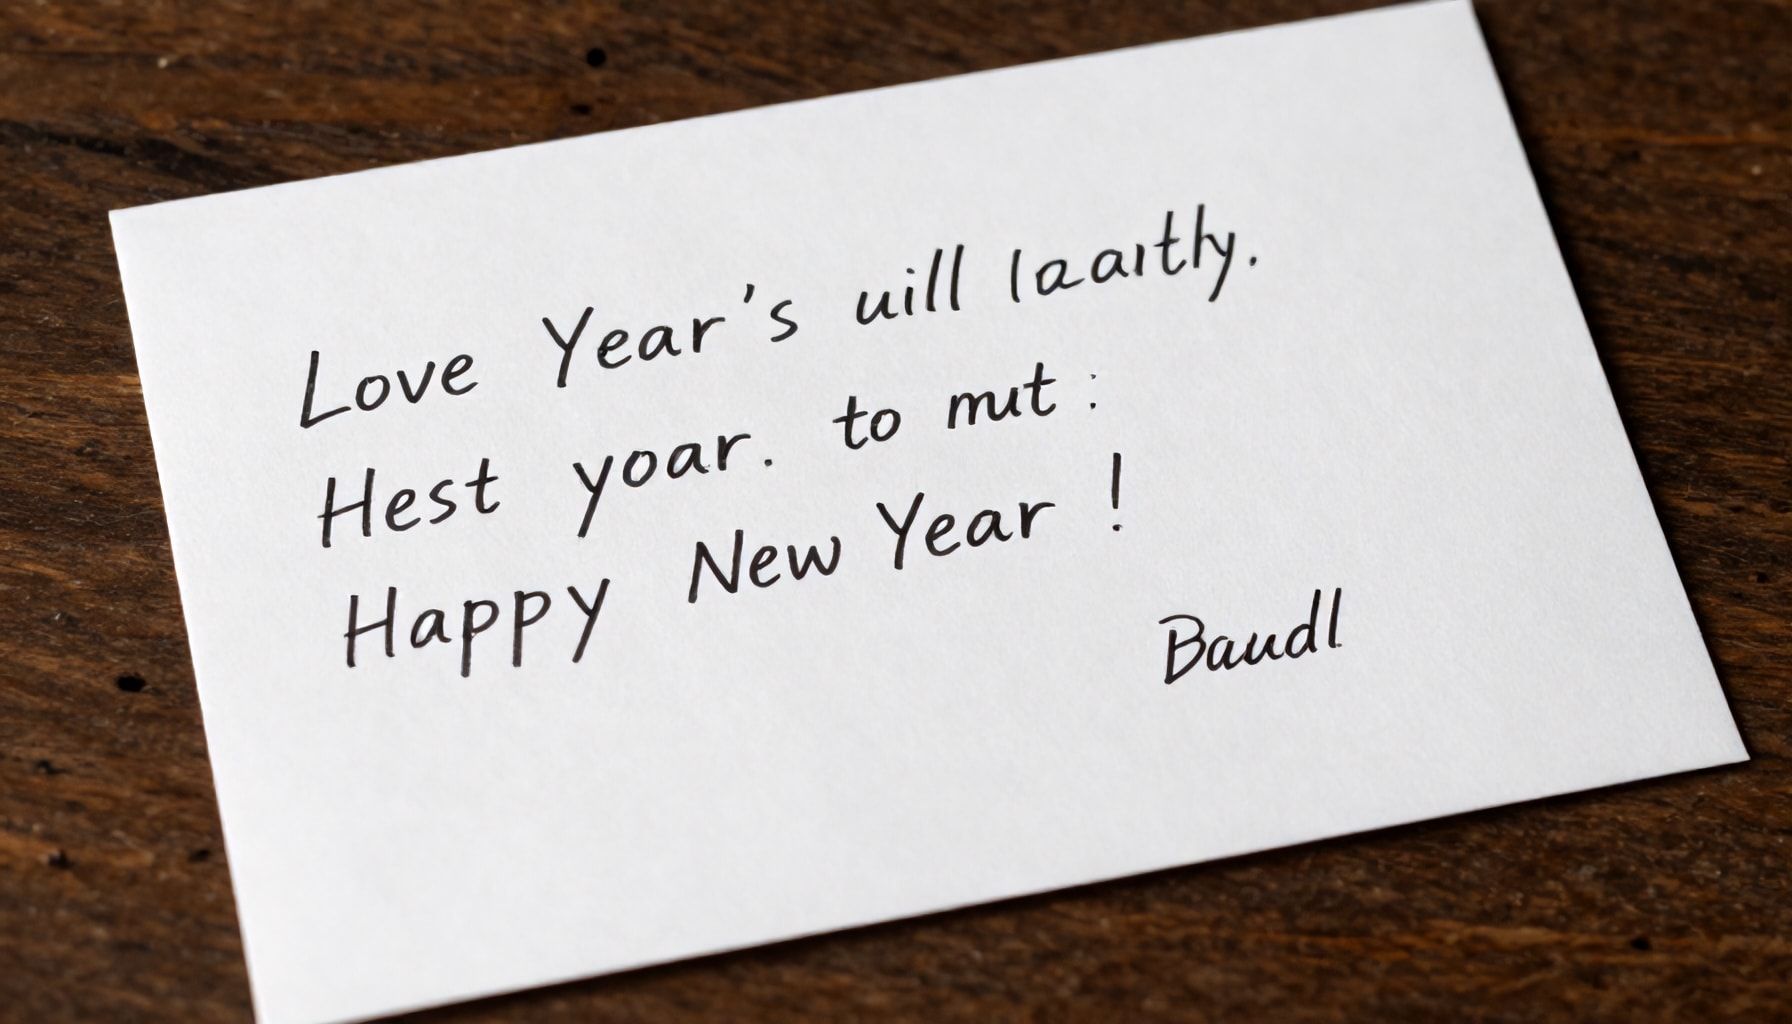 Love Year's uill laaıtly.
Hest yoar. to mut :
Happy New Year !
Baudl